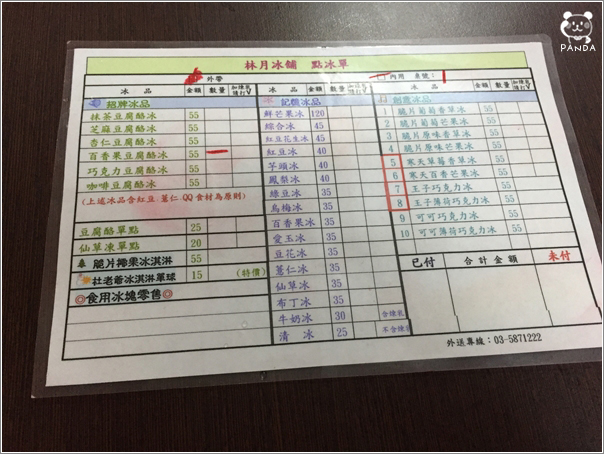 PANDA
林月冰舖 點冰單
外帶
內用 桌號:
冰品 金額 數量 冰品 金額 數量 冰品 金額 數量
招牌冰品
抹茶豆腐酪冰 55
芝麻豆腐酪冰 55
杏仁豆腐酪冰 55
百香果豆腐酪冰 55
巧克力豆腐酪冰 55
咖啡豆腐酪冰 55
(上述冰品含紅豆.薏仁.QQ食材為原則)
豆腐酪單點 25
仙草凍單點 20
脆片椰果冰淇淋 55
杜老爺冰淇淋單球 15 (特價)
◎食用冰塊零售◎
記憶冰品
鮮芒果冰 120
綜合冰 45
紅豆花生冰 45
紅豆冰 40
芋頭冰 40
鳳梨冰 40
綠豆冰 35
烏梅冰 35
百香果冰 35
愛玉冰 35
豆花冰 35
薏仁冰 35
仙草冰 35
布丁冰 35
牛奶冰 30
清冰 25
創意冰品
1 脆片葡萄香草冰 55
2 脆片葡萄芒果冰 55
3 脆片原味香草冰 55
4 脆片原味芒果冰 55
5 寒天草莓香草冰 55
6 寒天百香芒果冰 55
7 玉子巧克力冰 55
8 玉子薄荷巧克力冰 55
9 可可巧克力冰 55
10 可可薄荷巧克力冰 55
已付 合計金額 未付
外送專線:03-5871222